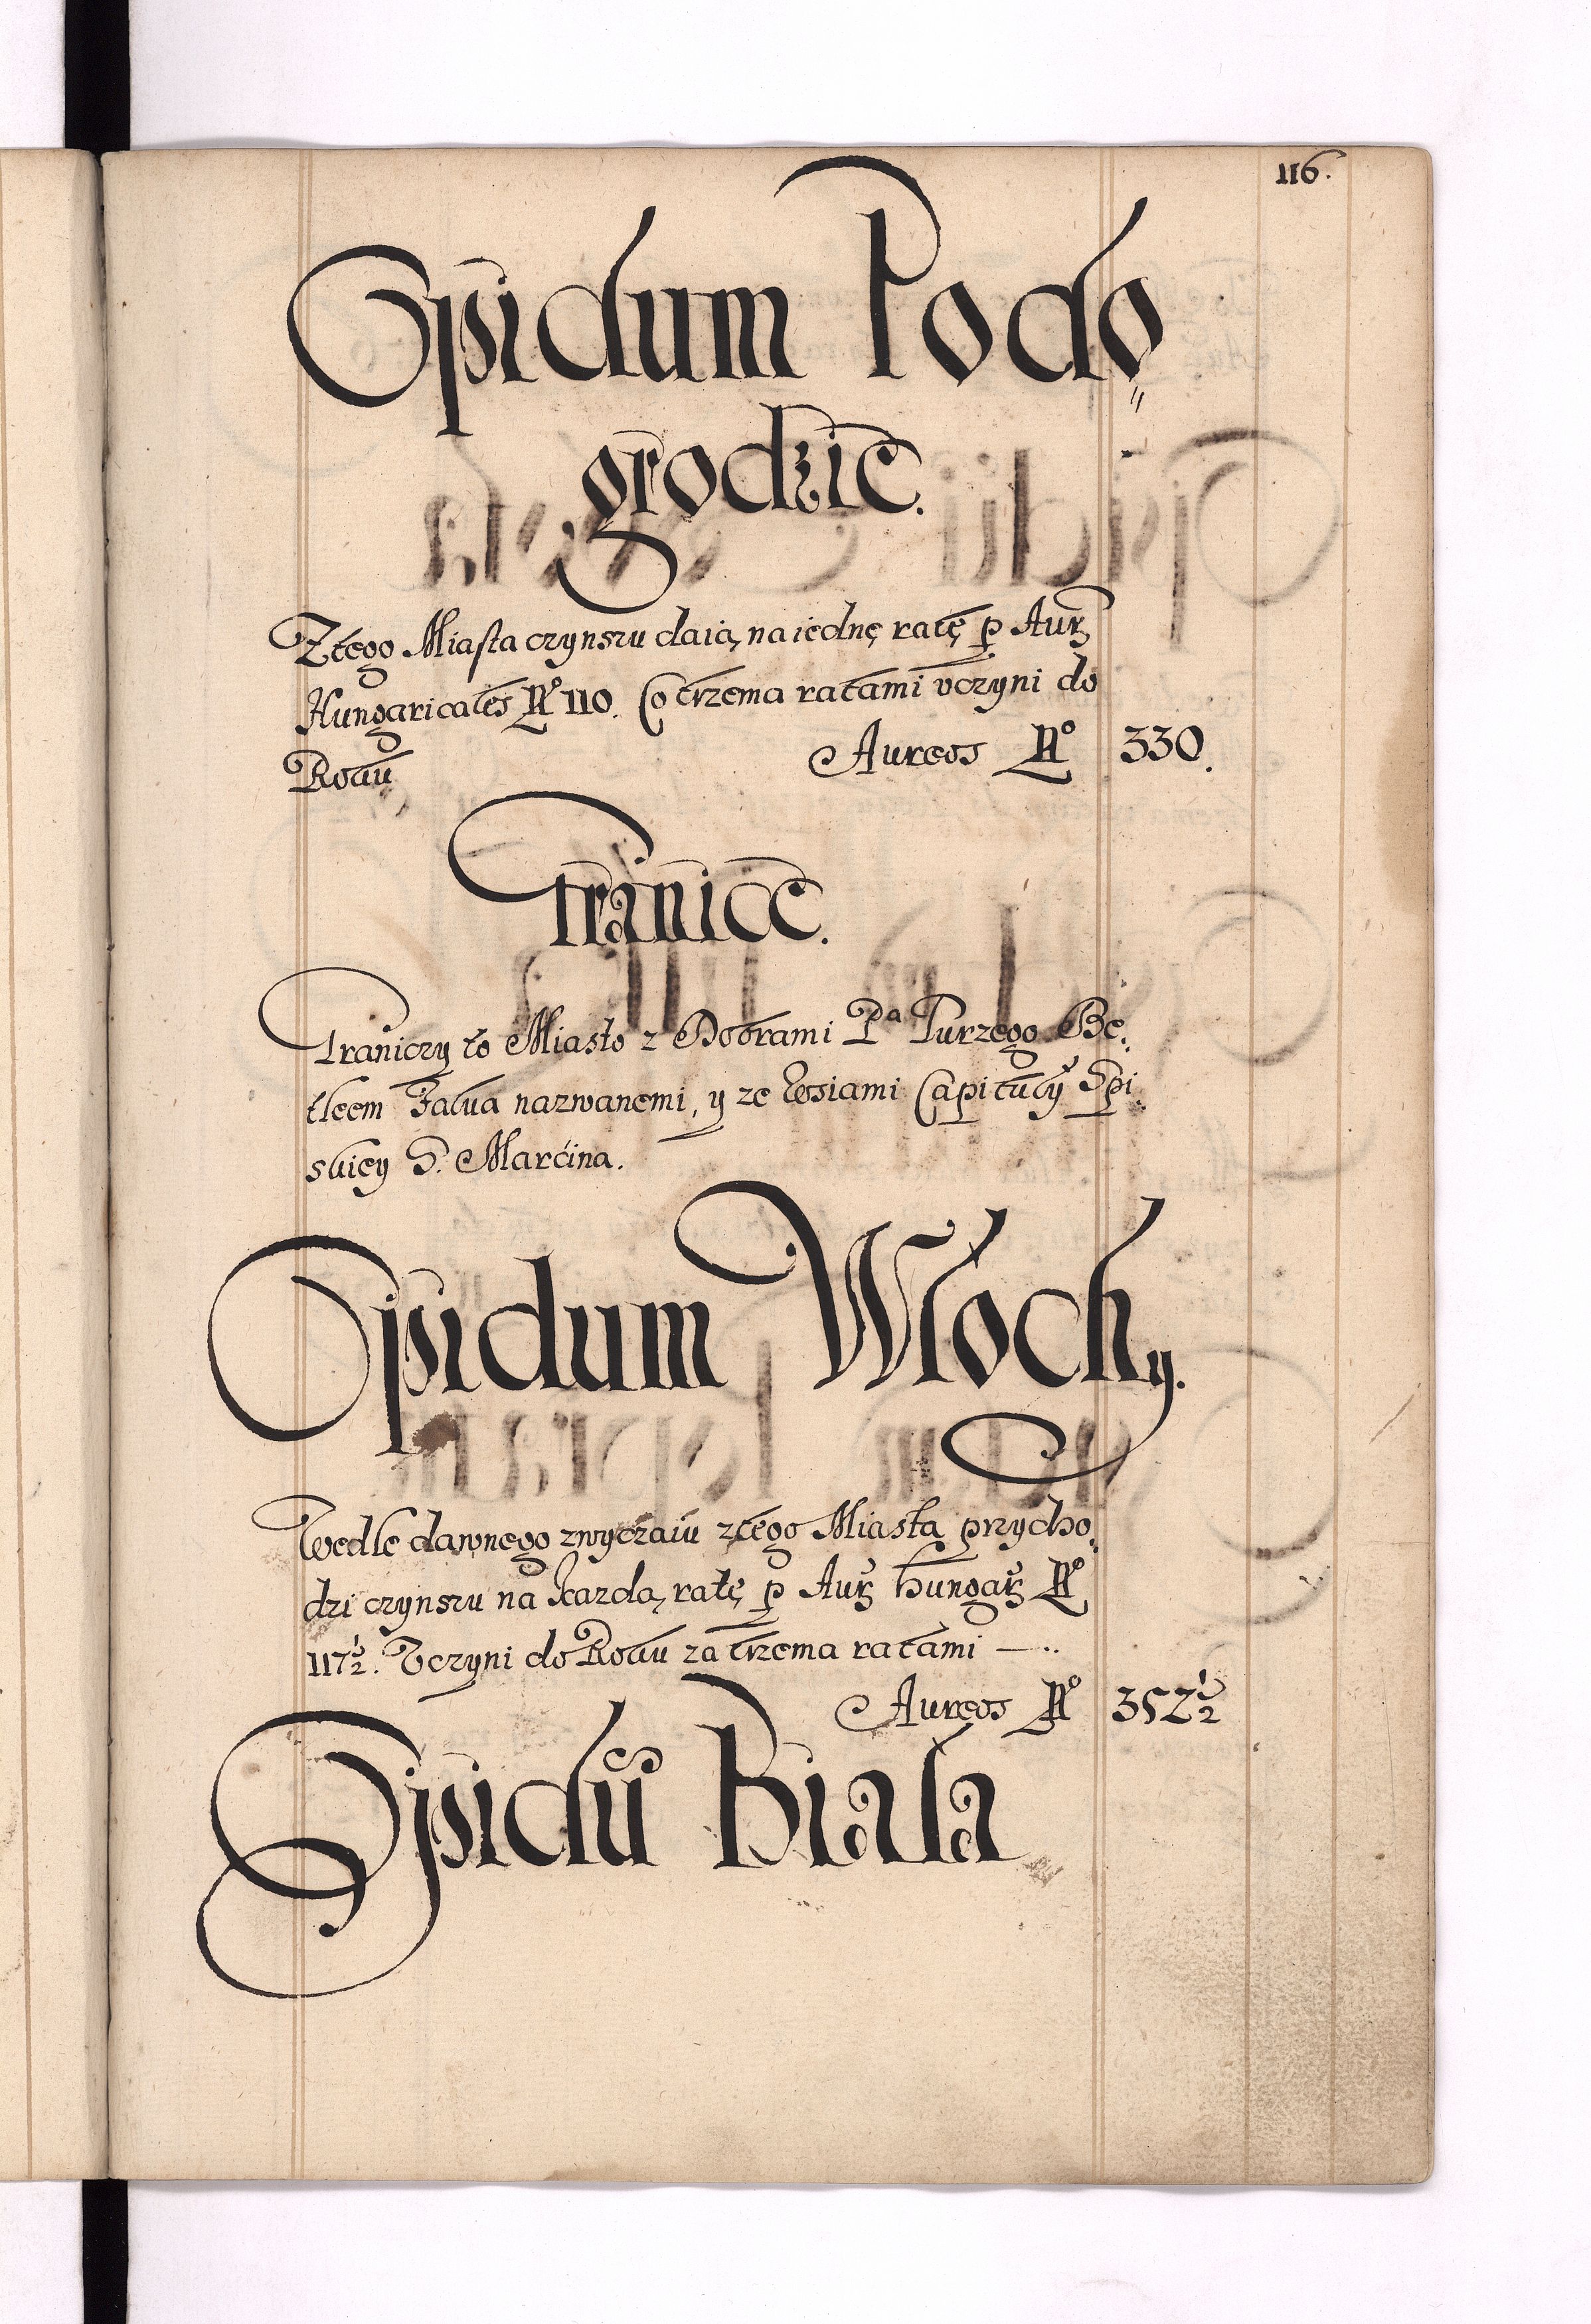 116.
Opidum Podo
grodzie.
Z tego Miasta czynszu daią na iednę ratę p Aur
Hungaricales No 110. Co trzema ratami vczyni do
Roku
Aureos No 330.
Granice.
Graniczy to Miasto z Dobrami Pa Turzego Be,
tleem Falua nazwanemi, y ze Wsiami Capituły Spi,
skiey S. Marcina.
Opidum Włochy.
Wedle dawnego zwyczaiu z tego Miasta przycho,
dzi czynszu na kazdą ratę p Aur hungar No
117½. Vczyni do Roku za trzema ratami —
Aureos No 352½
Opidū Biała